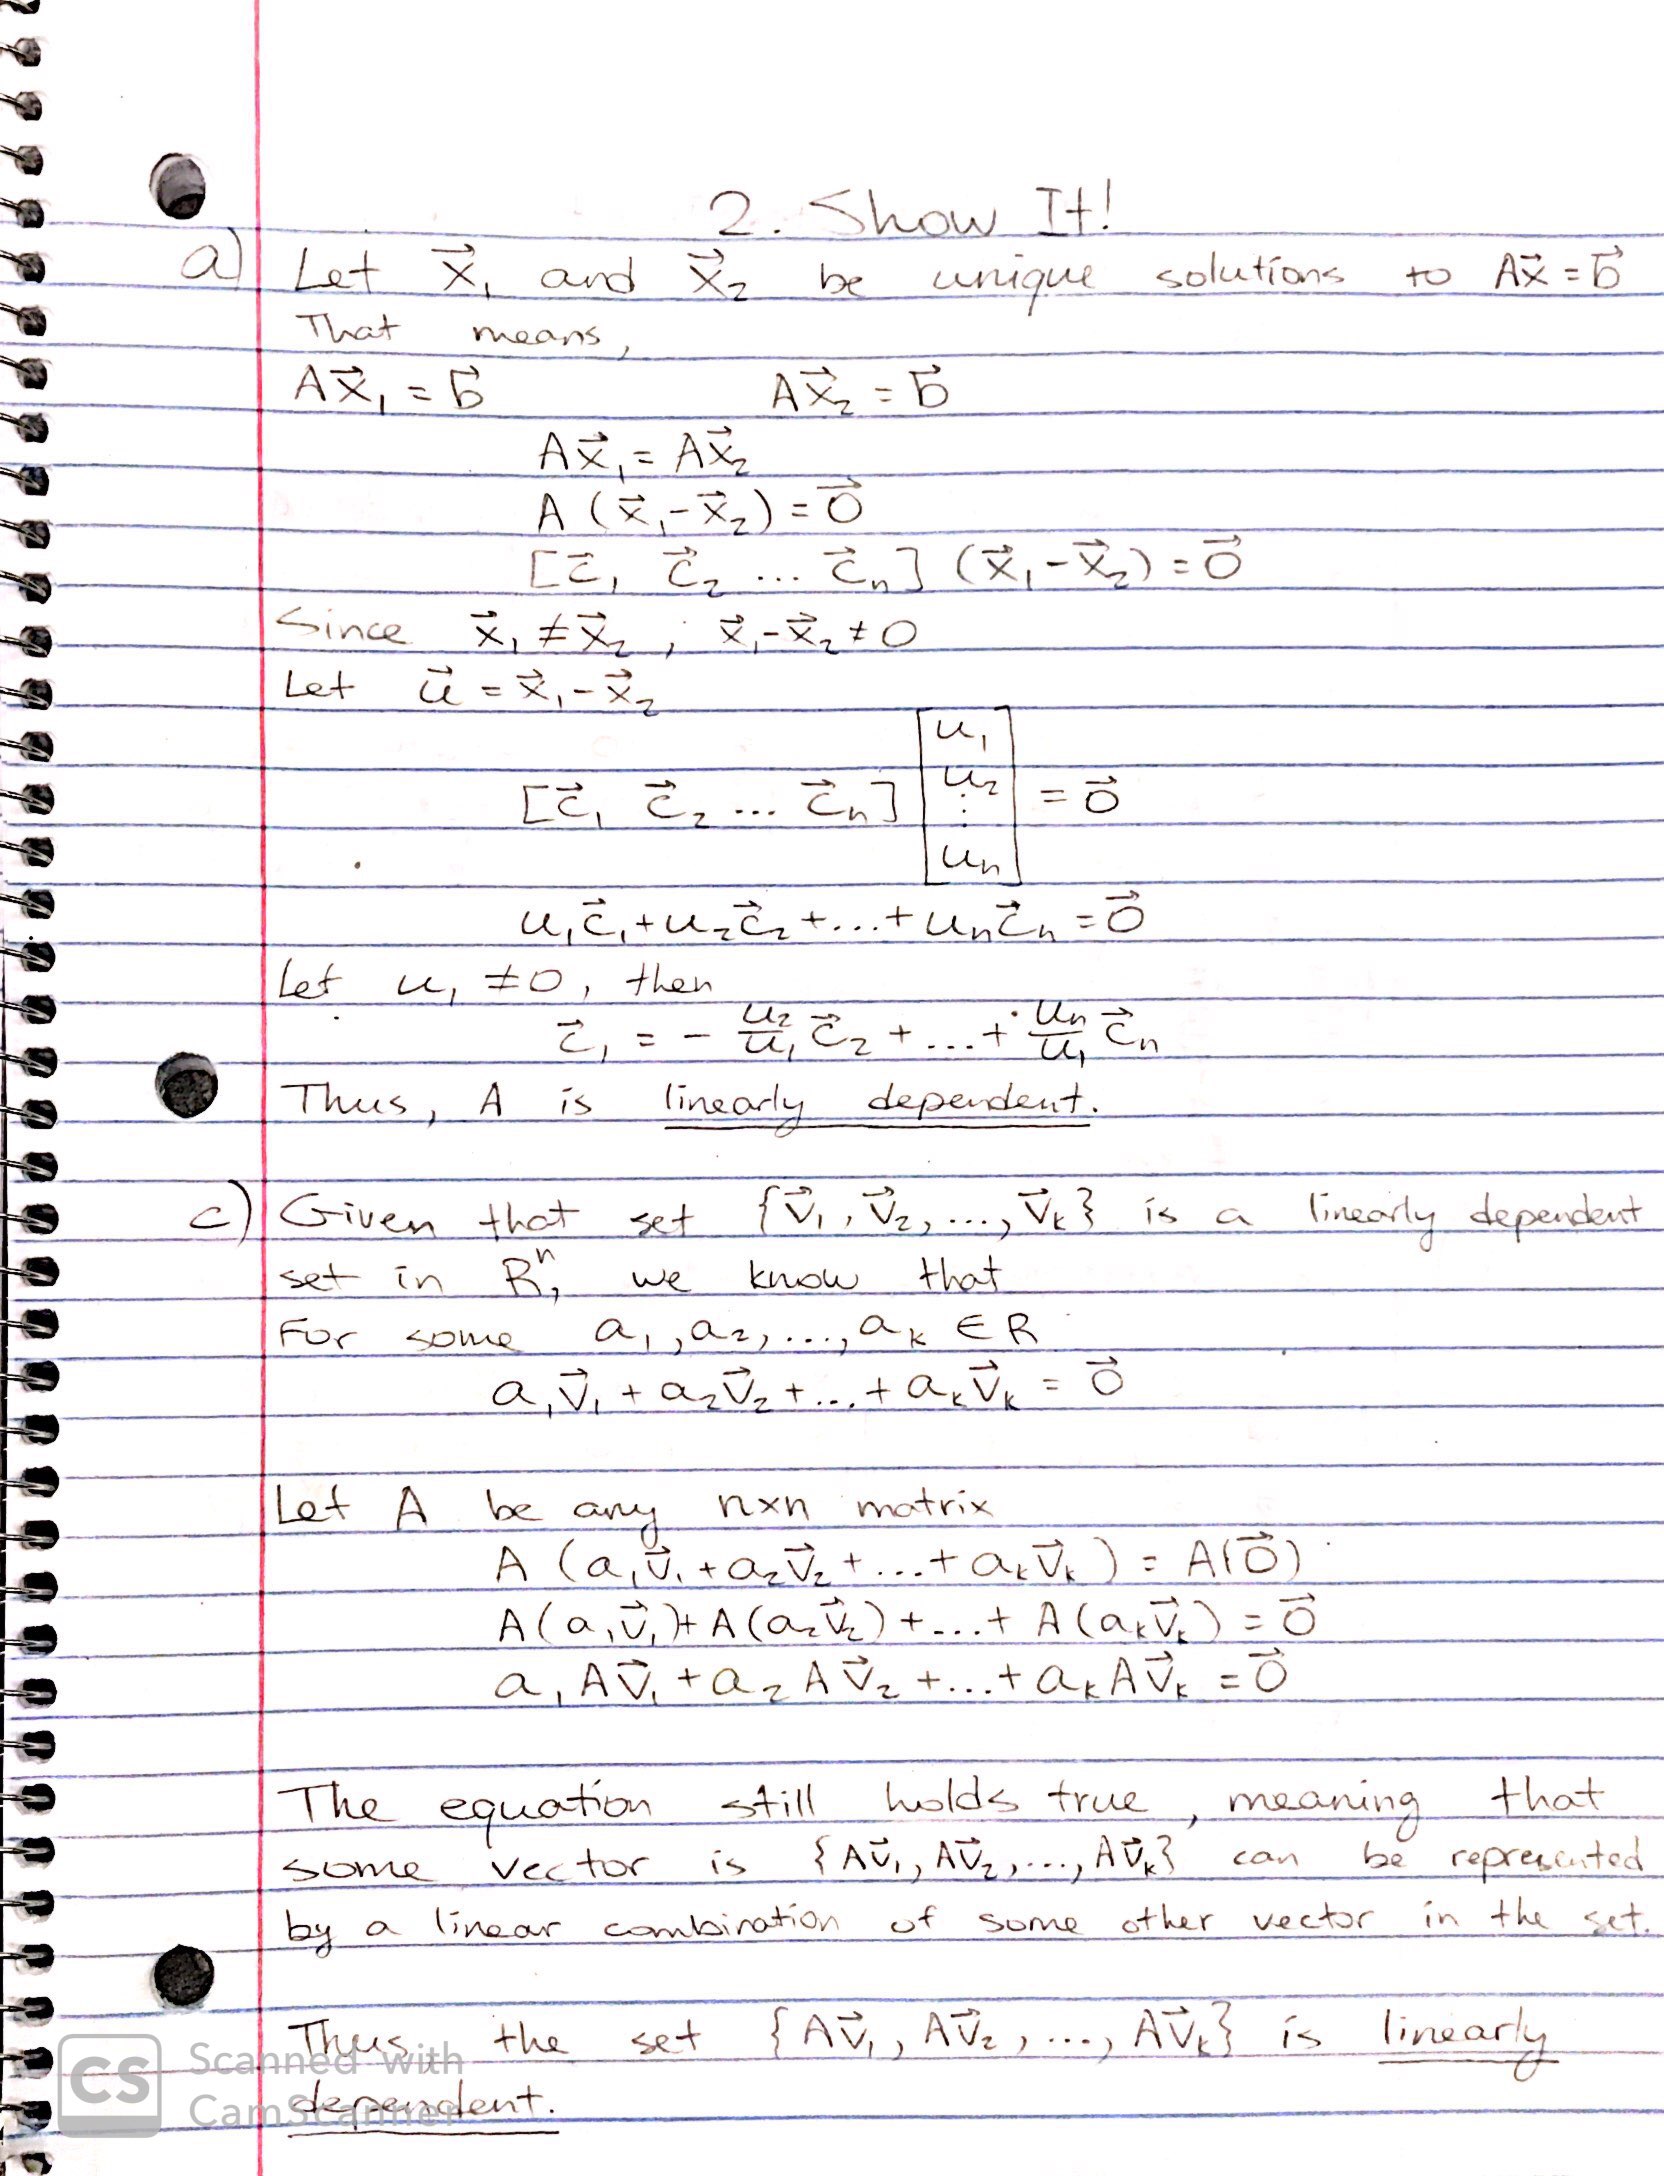 2. Show It!
a) Let x⃗₁ and x⃗₂ be unique solutions to Ax⃗ = b⃗
That means,
Ax⃗₁ = b⃗ Ax⃗₂ = b⃗
Ax⃗₁ = Ax⃗₂
A (x⃗₁ - x⃗₂) = 0⃗
[c⃗₁ c⃗₂ ... c⃗ₙ] (x⃗₁ - x⃗₂) = 0⃗
Since x⃗₁ ≠ x⃗₂, x⃗₁ - x⃗₂ ≠ 0
Let u⃗ = x⃗₁ - x⃗₂
[c⃗₁ c⃗₂ ... c⃗ₙ] [u₁ u₂ ⋮ uₙ] = 0⃗
u₁c⃗₁ + u₂c⃗₂ + ... + uₙc⃗ₙ = 0⃗
Let u₁ ≠ 0, then
c⃗₁ = - u₂/u₁ c⃗₂ + ... + uₙ/u₁ c⃗ₙ
Thus, A is linearly dependent.
c) Given that set {v⃗₁, v⃗₂, ..., v⃗ₖ} is a linearly dependent
set in Rⁿ, we know that
For some a₁, a₂, ..., aₖ ∈ R
a₁v⃗₁ + a₂v⃗₂ + ... + aₖv⃗ₖ = 0⃗
Let A be any n×n matrix
A (a₁v⃗₁ + a₂v⃗₂ + ... + aₖv⃗ₖ) = A(0⃗)
A(a₁v⃗₁) + A(a₂v⃗₂) + ... + A(aₖv⃗ₖ) = 0⃗
a₁Av⃗₁ + a₂Av⃗₂ + ... + aₖAv⃗ₖ = 0⃗
The equation still holds true, meaning that
some vector is {Av⃗₁, Av⃗₂, ..., Av⃗ₖ} can be represented
by a linear combination of some other vector in the set.
Thus, the set {Av⃗₁, Av⃗₂, ..., Av⃗ₖ} is linearly
dependent.
CS Scanned with
CamScanner